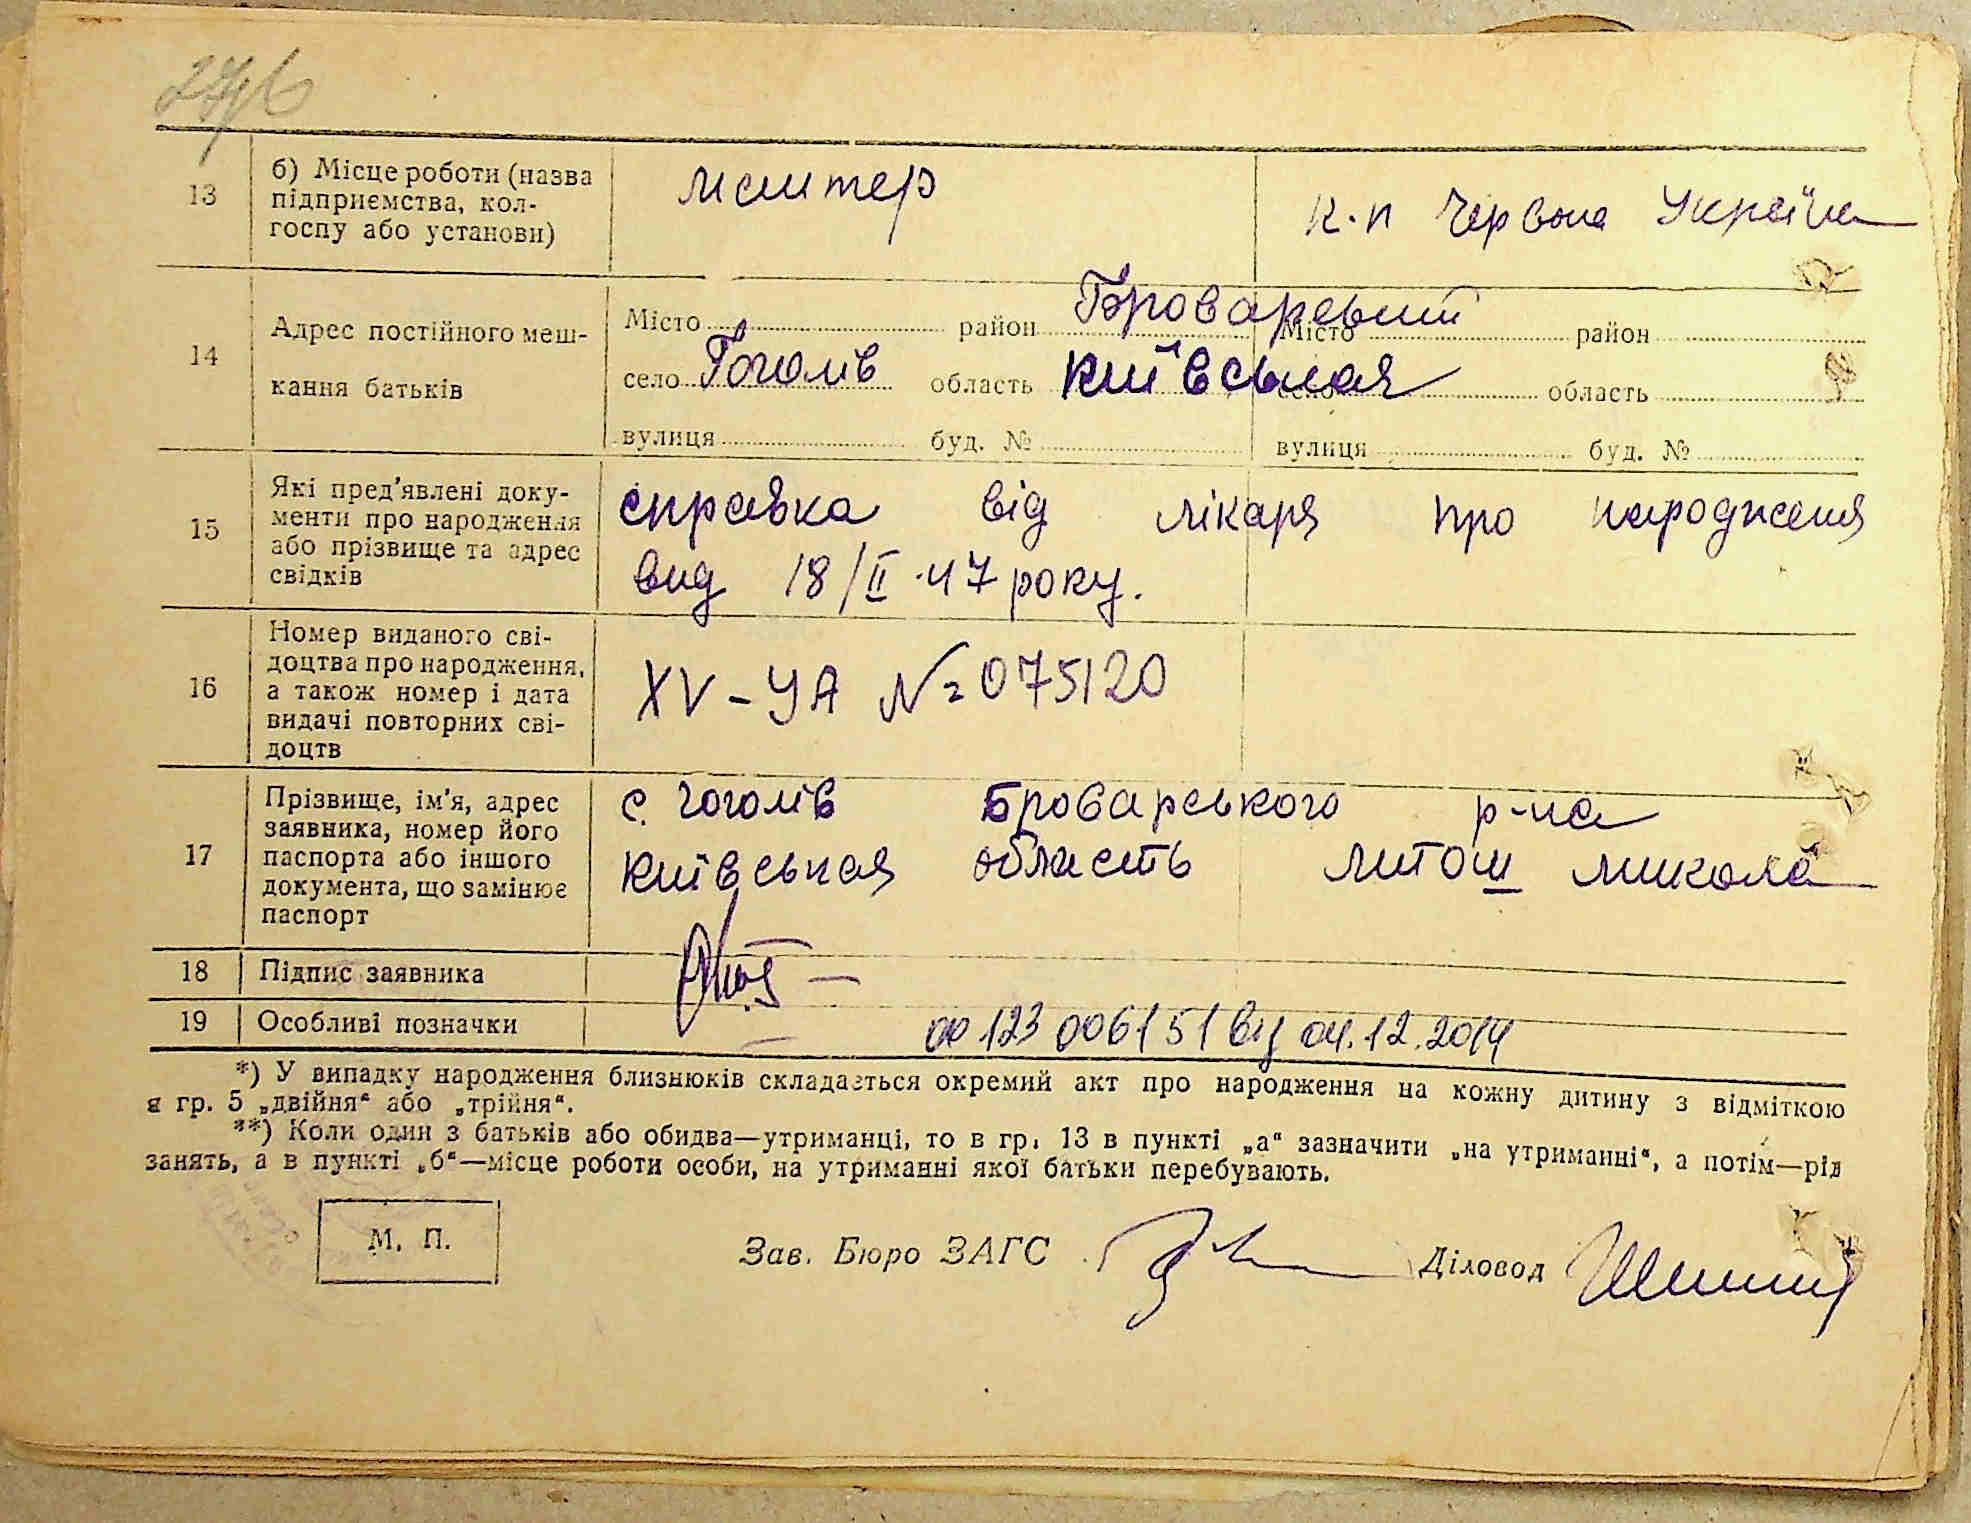 13
б) Місце роботи (назва
підприємства, кол-
госпу або установи)
к-п Червона Україна
14
Адрес постійного меш-
кання батьків
Місто район Броварський Місто район
село Гоголів область Київська село область
вулиця буд. № вулиця буд. №
15
Які пред'явлені доку-
менти про народження
або прізвище та адрес
свідків
справка від лікаря про народженя
вид 18/II·47 року.
16
Номер виданого сві-
доцтва про народження,
а також номер і дата
видачі повторних сві-
доцтв
XV-УА №075120
17
Прізвище, ім'я, адрес
заявника, номер його
паспорта або іншого
документа, що замінює
паспорт
с. Гоголів Броварського р-на
Київськая область Литош Микола
18
Підпис заявника
19
Особливі позначки
00123006151 від 04.12.2014
*) У випадку народження близнюків складається окремий акт про народження на кожну дитину з відміткою
в гр. 5 „двійня“ або „трійня“.
**) Коли один з батьків або обидва—утриманці, то в гр. 13 в пункті „а“ зазначити „на утриманні“, а потім—рід
занять, а в пункті „б“—місце роботи особи, на утриманні якої батьки перебувають.
М. П.
Зав. Бюро ЗАГС
Діловод